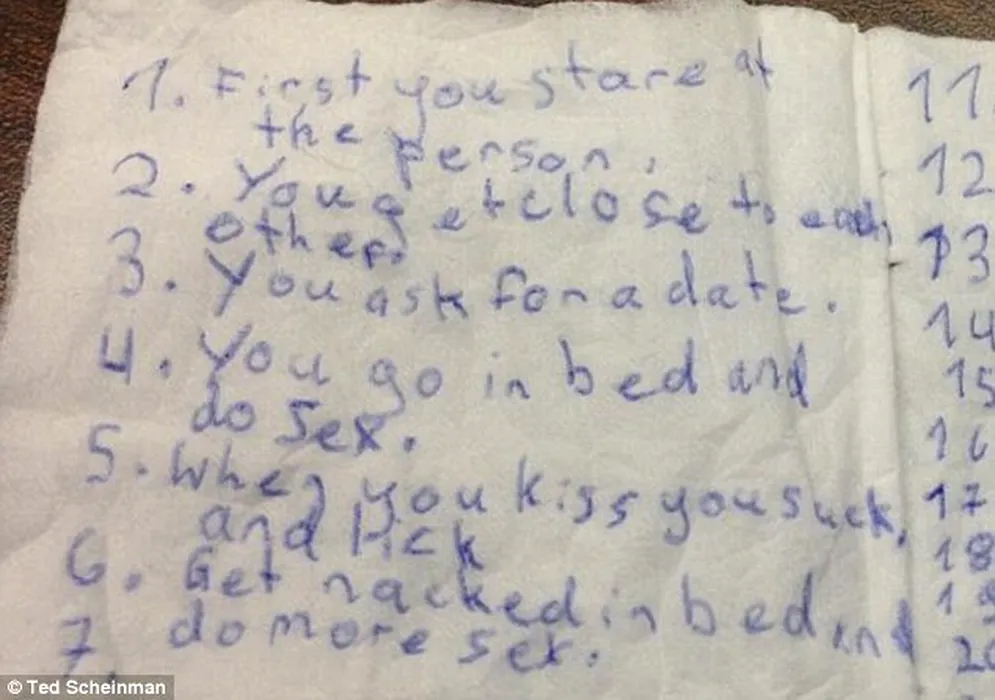 1. First you stare at
the person.
2. You get close to each
other.
3. You ask for a date.
4. You go in bed and
do sex.
5. When you kiss you suck,
and lick
6. Get nacked in bed and
do more sex.
7
11.
12
13
14
15
16
17
18
19
20
© Ted Scheinman